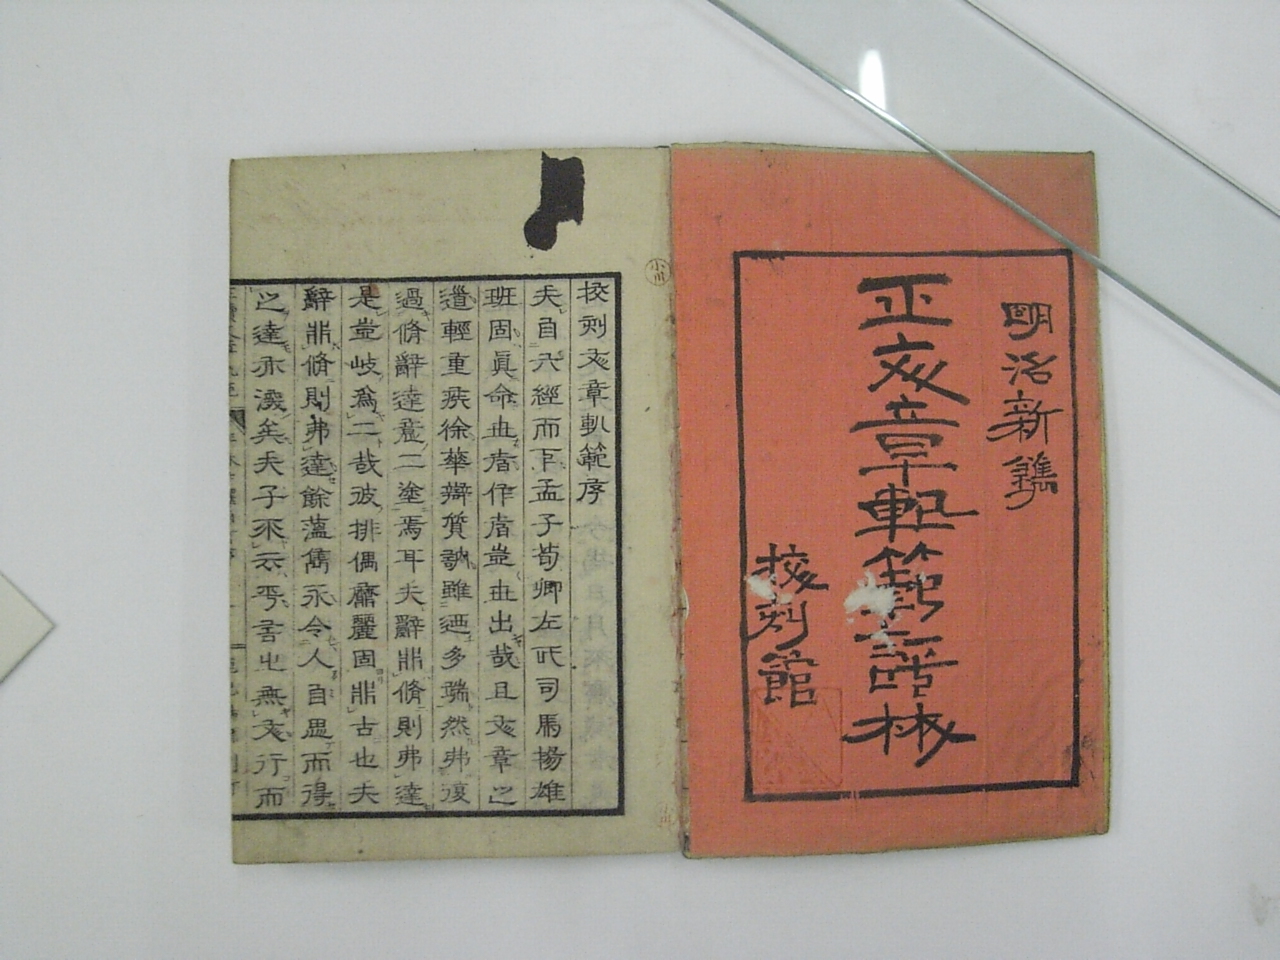 明洛新鐫
正文章軌範評林
校刻館
校刻文章軌範序
夫自六經而下孟子荀卿左氏司馬揚雄
班固眞命世者作者豈世出哉且文章之
道輕重疾徐華辯質訥雖迺多端然弗復
過脩辭達意二塗焉耳夫辭非脩則弗達
是豈岐爲二哉彼排偶靡麗固非古也夫
辭非脩則弗達餘薀雋永令人自思而得
之達亦淺矣夫子不云乎言之無文行而
小川